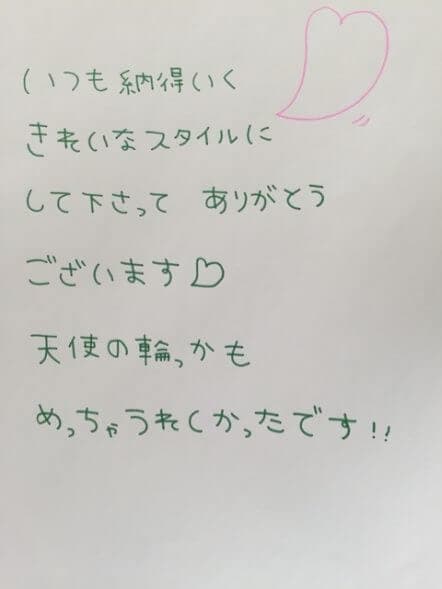 いつも納得いく
きれいなスタイルに
して下さって ありがとう
ございます♡
天使の輪っかも
めっちゃうれしかったです!!